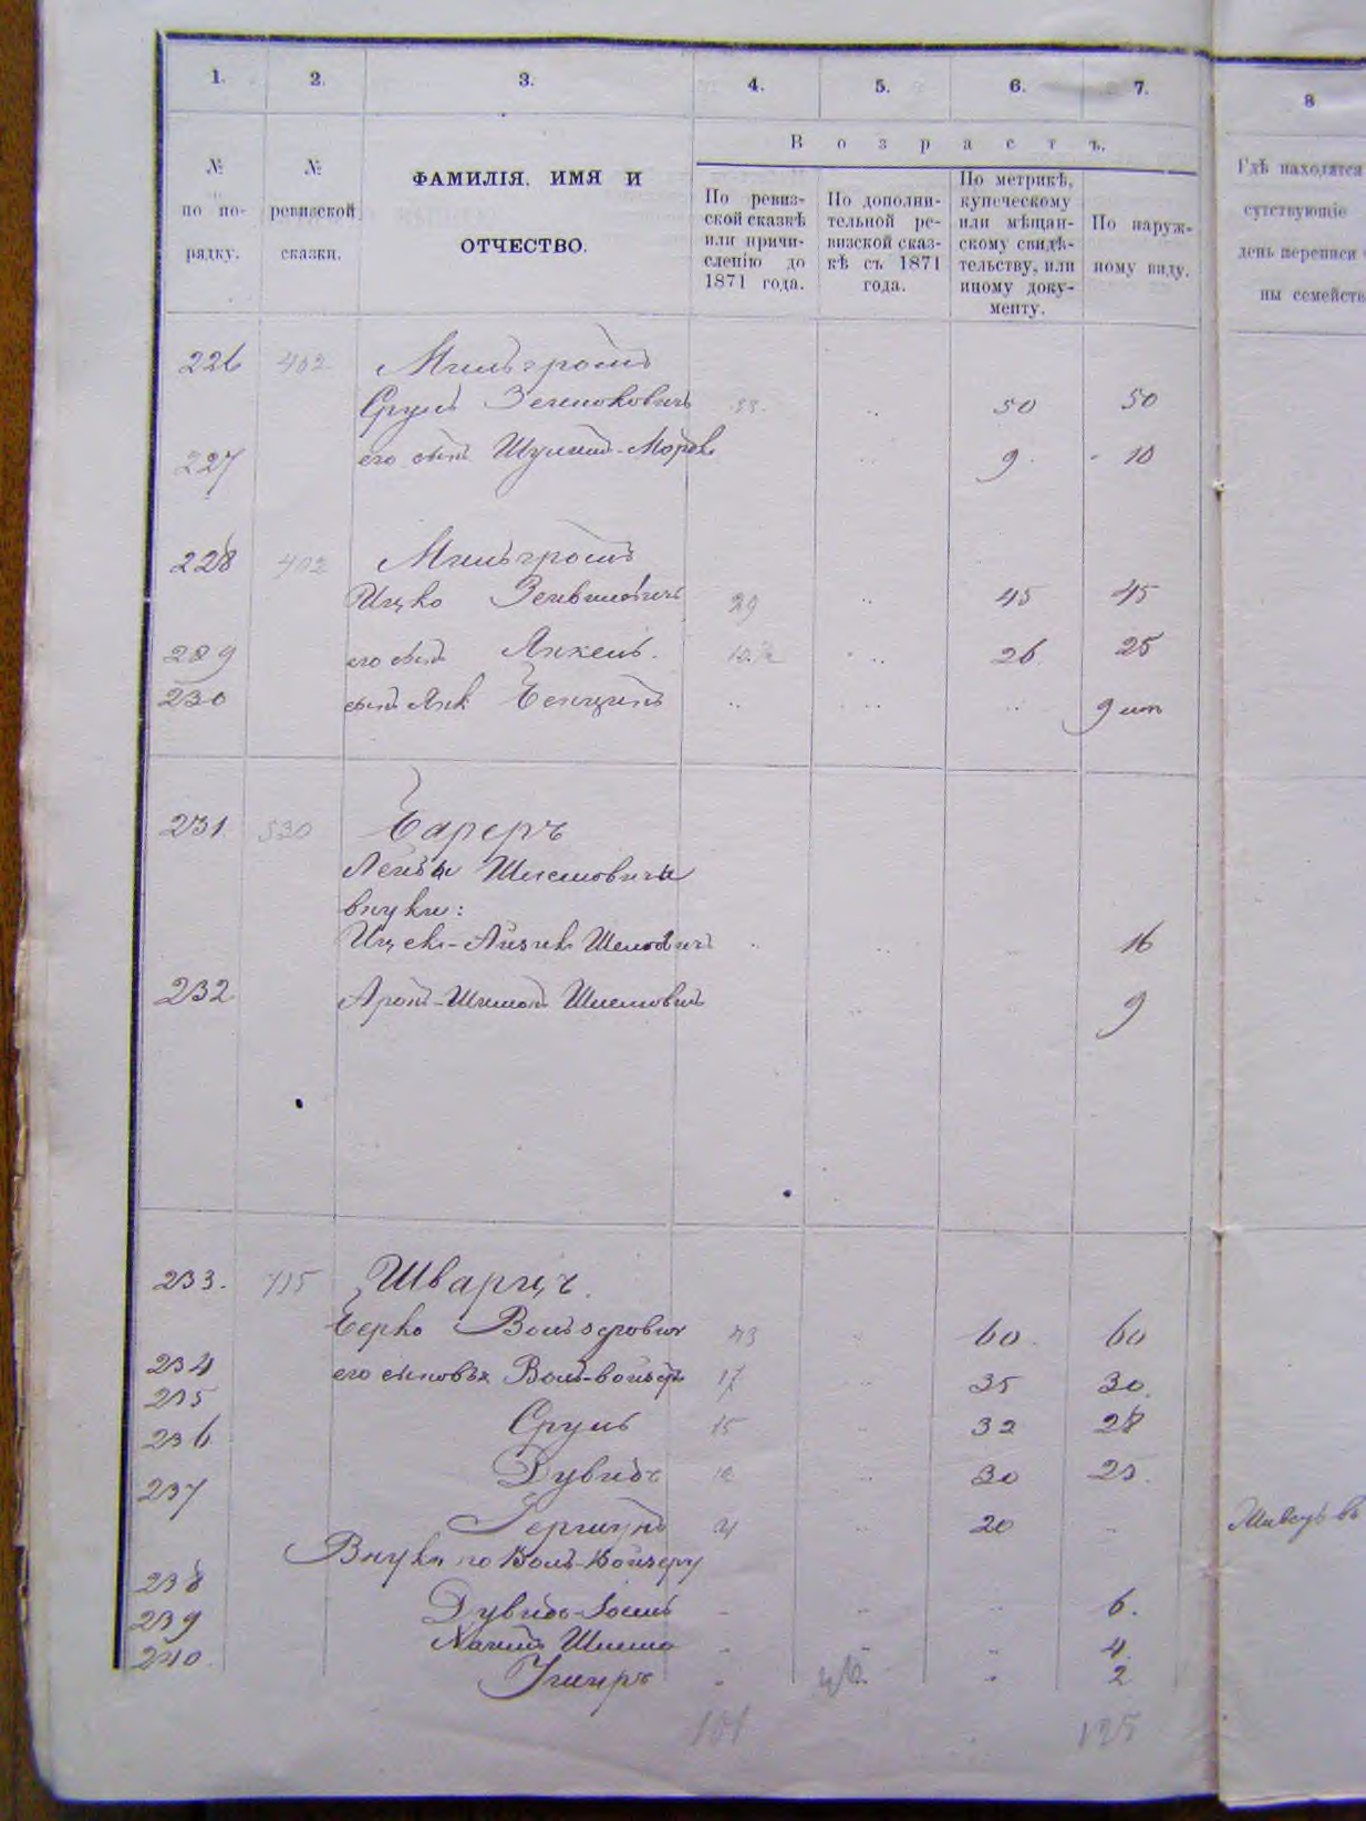 1. 2. 3. 4. 5. 6. 7. 8
№ по по-рядку.
№ ревизской сказки.
ФАМИЛІЯ, ИМЯ И
ОТЧЕСТВО.
Возрастъ.
По ревиз-
ской сказкѣ
или причи-
сленію до
1871 года.
По дополни-
тельной ре-
визской сказ-
кѣ съ 1871
года.
По метрикѣ,
купеческому
или мѣщан-
скому свидѣ-
тельству, или
иному доку-
менту.
По наруж-
ному виду.
Гдѣ находятся
сутствующіе
день переписи
ны семейств
226 402 Мильгромъ
Срулъ 33 50 50
227 его сынъ 9 10
228 402 Мильгромъ
Ицко 29 45 45
229 его сынъ Янкель 26 25
230 сынъ Янк Бенціонъ 9 мѣ
231. 530 Бареръ
Лейбы Шлемовича
внуки:
Ицекъ-Айзикъ Шлемовичъ 16
232 Аронъ-Шимонъ Шлемовичъ 9
233. 715 Шварцъ.
Берко Вользеровичъ 43 60 60
234 его сыновья Воль-Войзеръ 17 35 30
235 Срулъ 15 32 28
236 Дувидъ 12 30 25
237 Гершунъ 4 20
Внуки по Воль-Войзеру
238 Дувидъ-Іосель 6.
239 Нахманъ Шлема 4
240 2
101 125